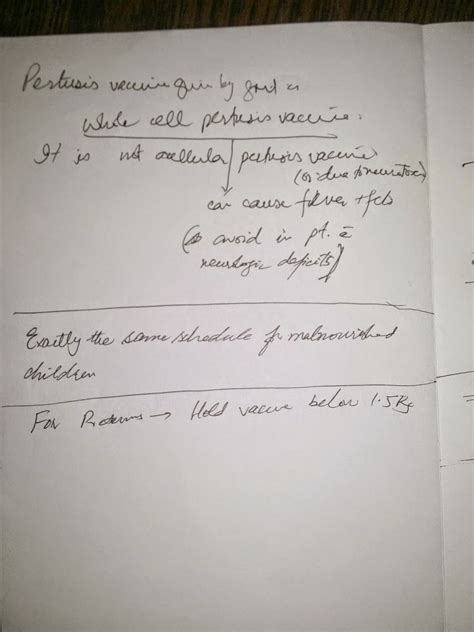 Pertusis vaccine given by govt is
whole cell pertusis vaccine.
It is not acellular pertusis vaccine
(or due to
can cause fever + fits
(so avoid in pt. c̄
neurologic deficits)
Exactly the same schedule for malnourished
children
For Preterms → Hold vaccine below 1.5 Kg